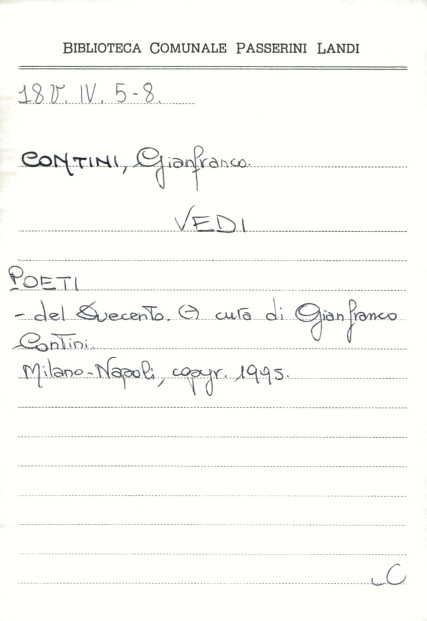 BIBLIOTECA COMUNALE PASSERINI LANDI
18 V. IV. 5-8.
CONTINI, Gianfranco.
VEDI
POETI
- del Duecento. A cura di Gianfranco
Contini.
Milano-Napoli, copyr. 1995.